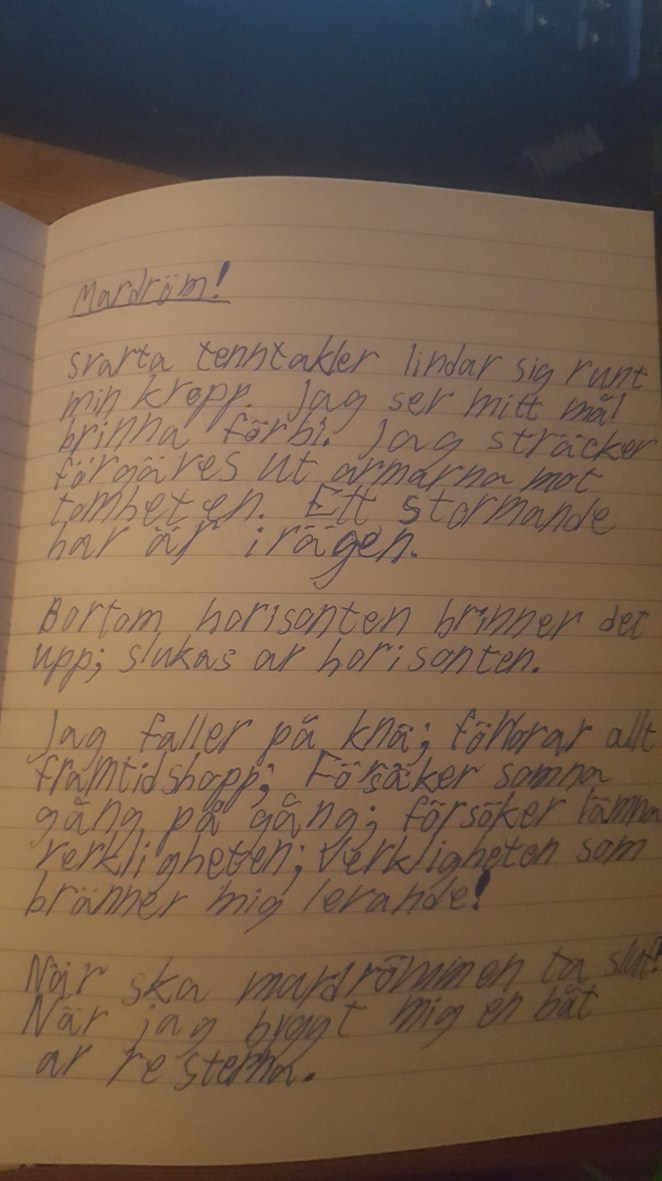 Mardröm!
Svarta tenntakler lindar sig runt
min kropp. Jag ser mitt mål
brinna förbi. Jag sträcker
förgäves ut armarna mot
tomheten. Ett stormande
hav är ivägen.
Bortom horisonten brinner det
upp; slukas av horisonten.
Jag faller på knä; förlorar allt
framtidshopp; Försöker somna
gång på gång; försöker lämna
verkligheten; Verkligheten som
bränner mig levande!
När ska mardrömmen ta slut?
När jag byggt mig en båt
av resterna.